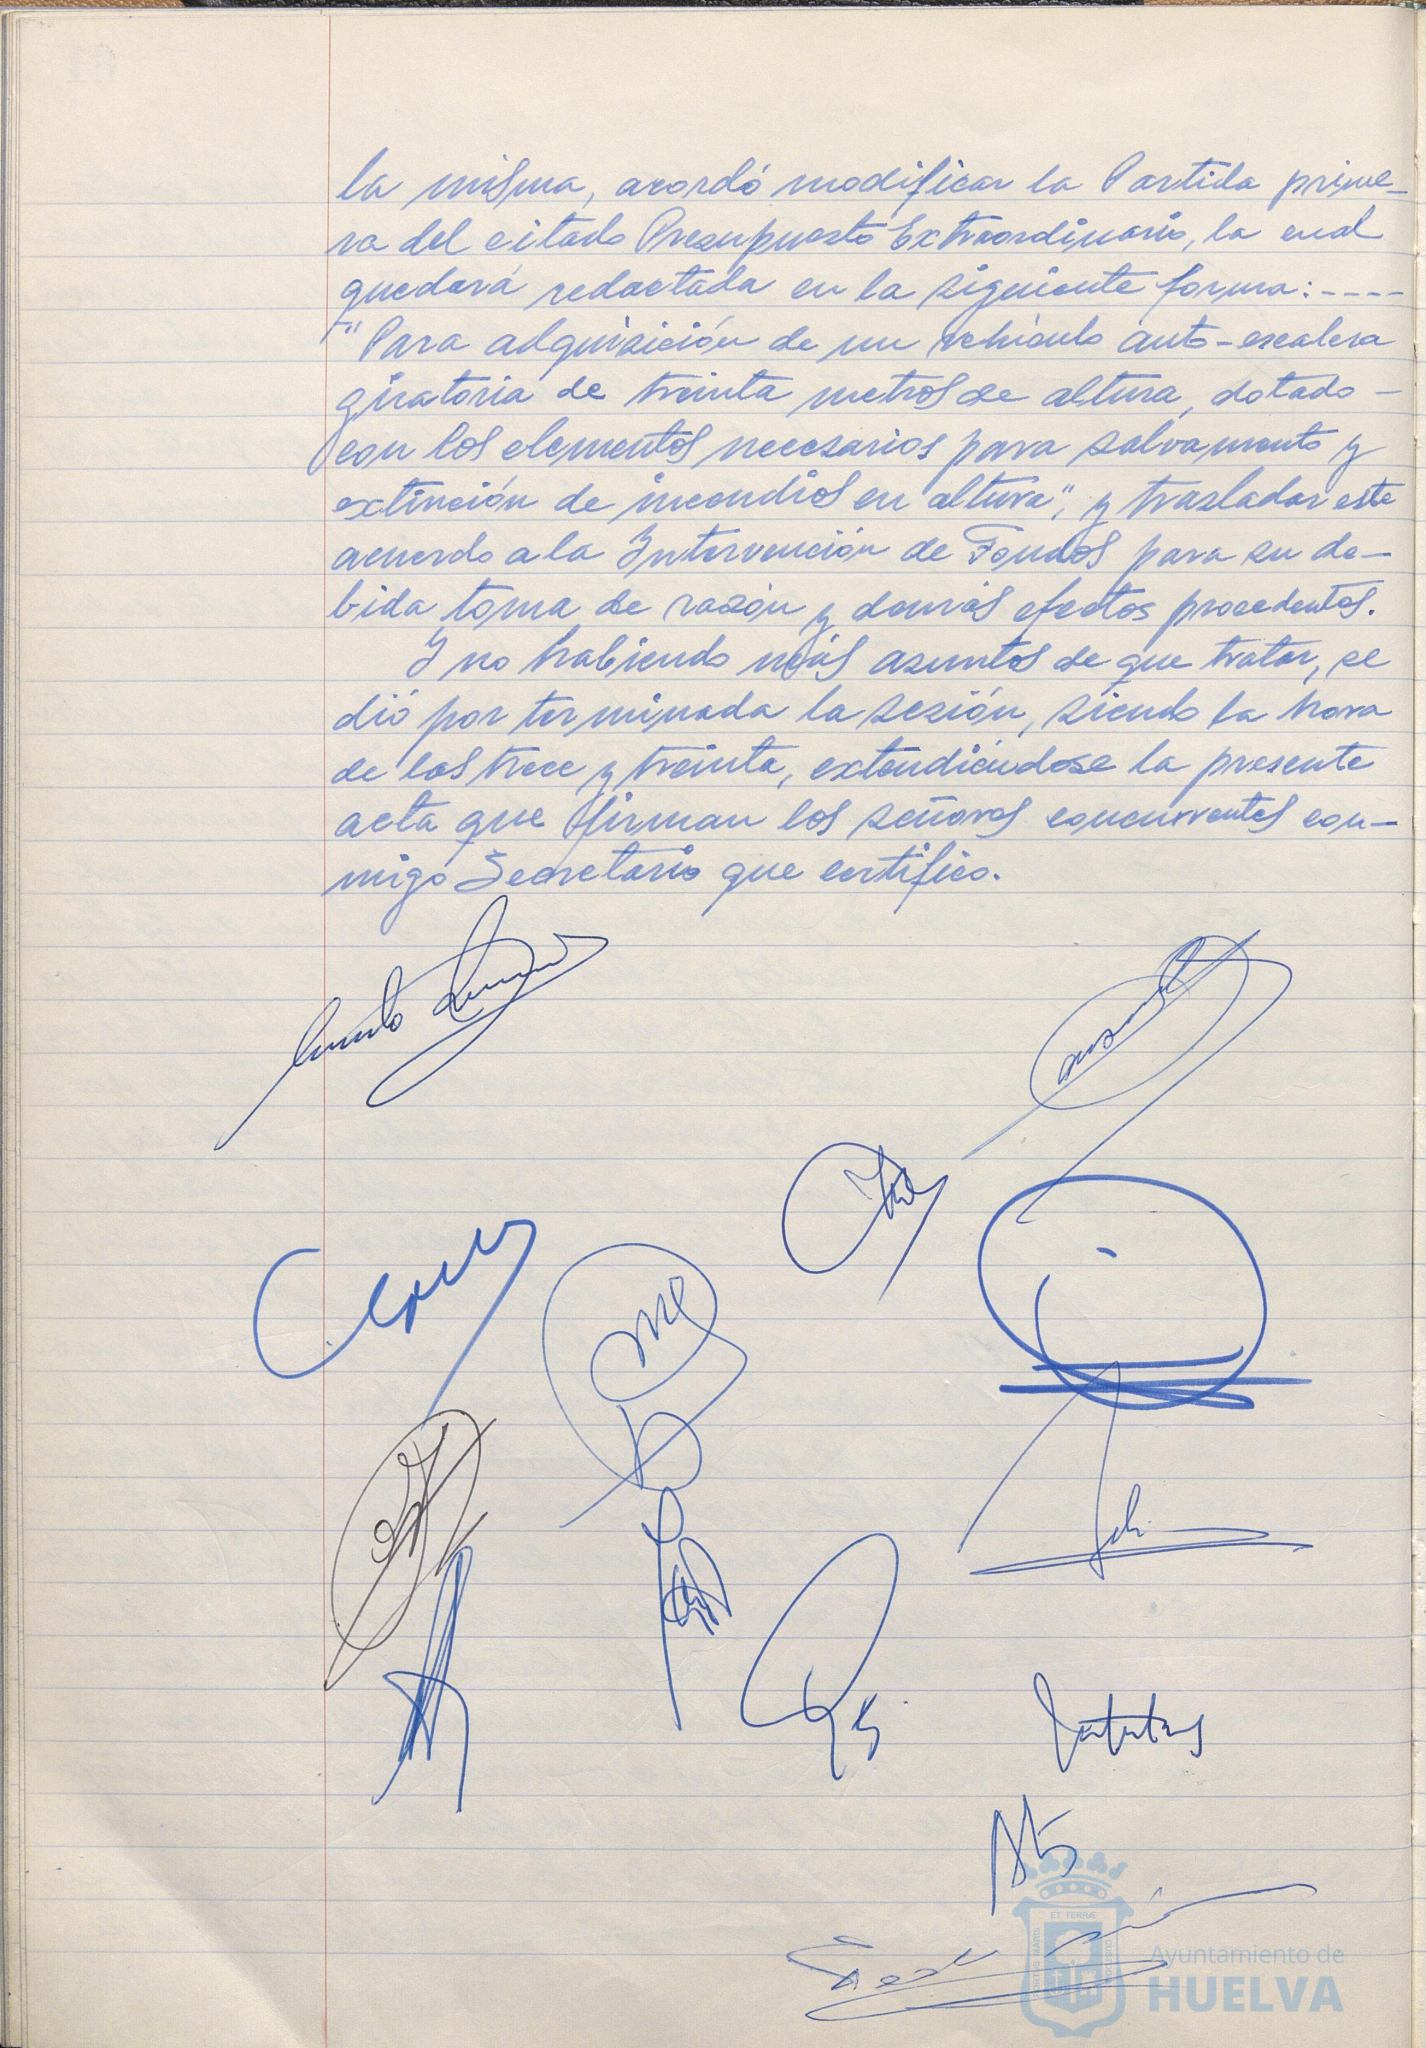 la misma, acordó modificar la Partida prime-
ra del citado Presupuesto Extraordinario, la cual
quedará redactada en la siguiente forma:----
"Para adquisición de un vehículo auto-escalera
giratoria de treinta metros de altura, dotado-
con los elementos necesarios para salvamento y
extinción de incendios en altura", y trasladar este
acuerdo a la Intervención de Fondos para su de-
bida toma de razón y demás efectos procedentes.
Y no habiendo más asuntos de que tratar, se
dió por terminada la sesión, siendo la hora
de las trece y treinta, extendiéndose la presente
acta que firman los señores concurrentes con-
migo Secretario que certifico.
ET TERRÆ
Ayuntamiento de
HUELVA